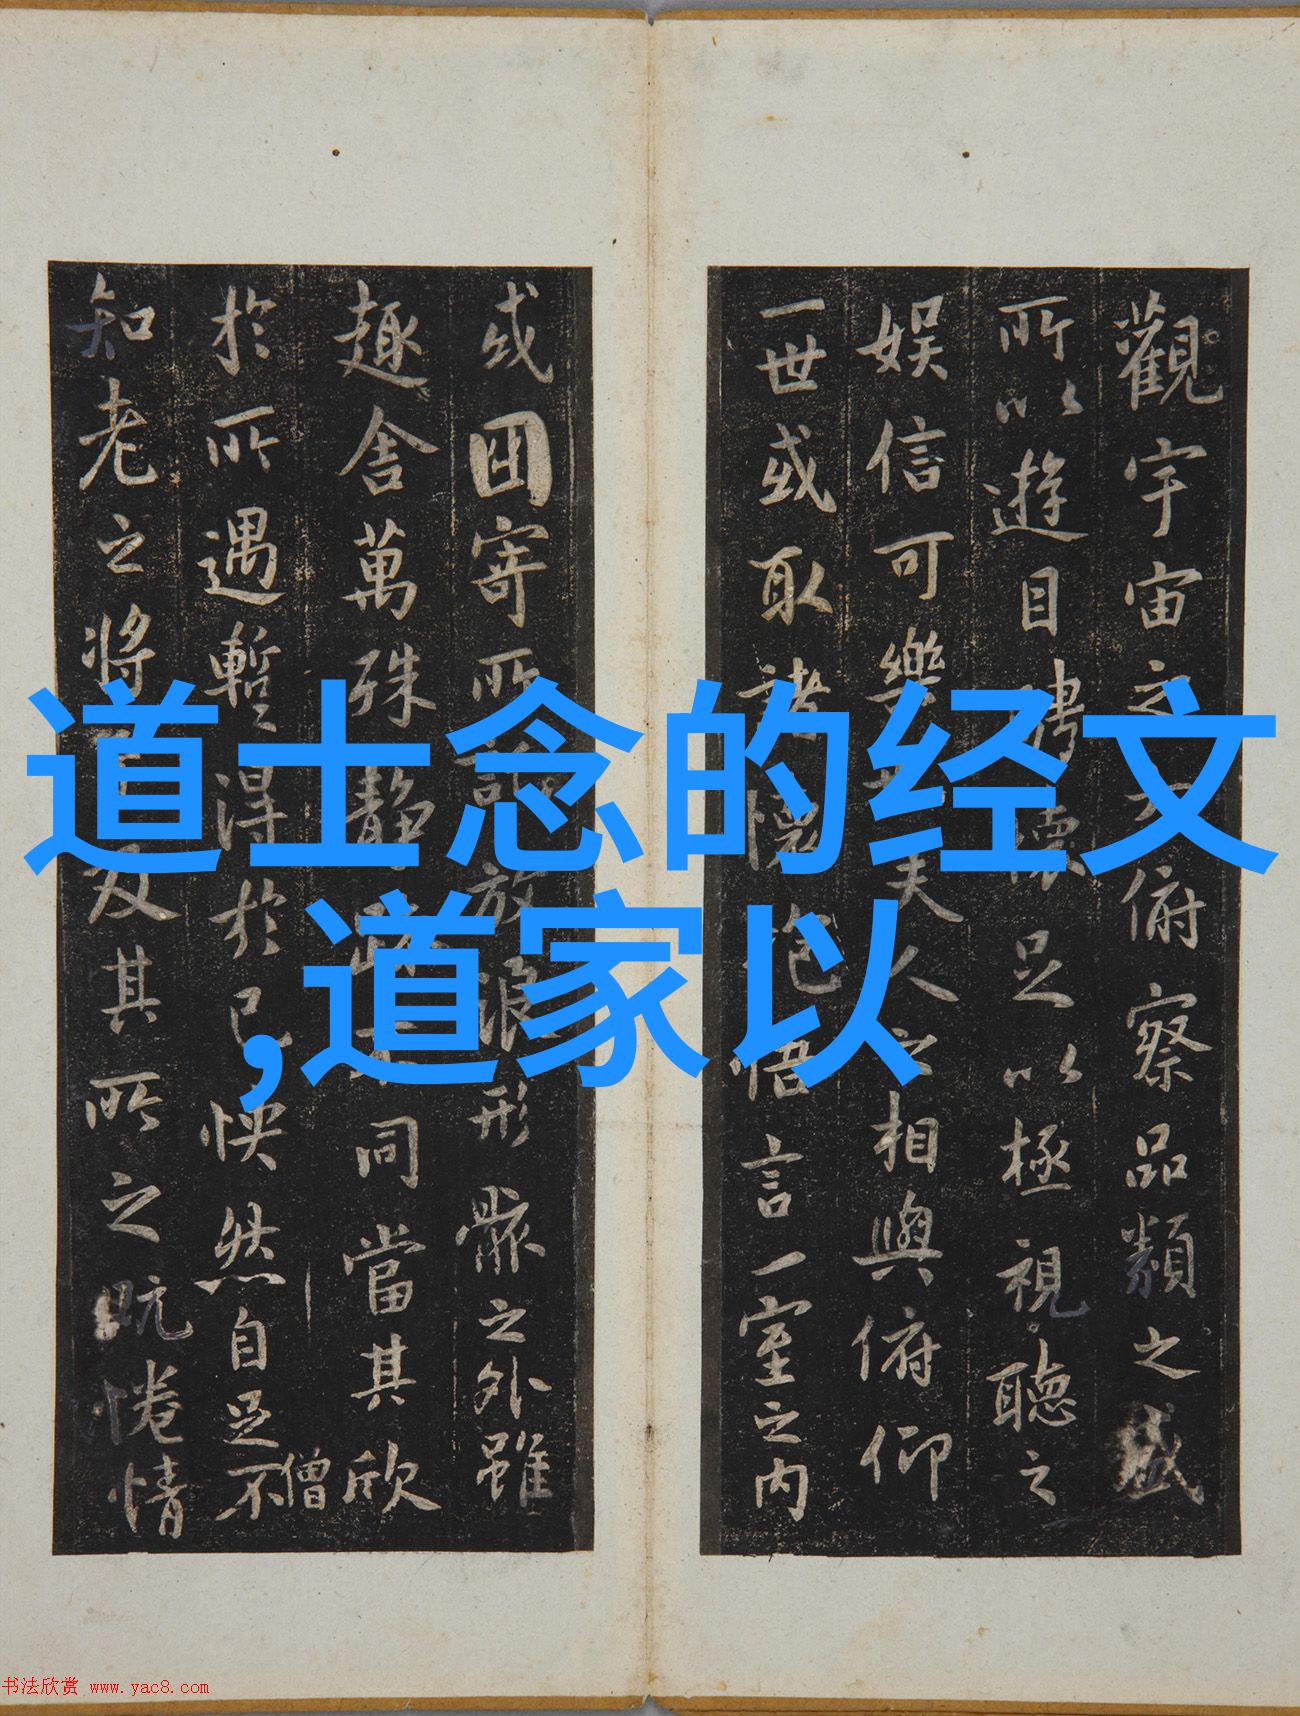 觀宇宙之大俯察品類之盛
所以遊目騁懷足以極視聽之
娛信可樂也夫人之相與俯仰
一世或取諸懷抱悟言一室之内
或因寄所託放浪形骸之外雖
趣舍萬殊靜躁不同當其欣
於所遇暫得於己怏然自足不
僧
知老之將至及其所之既惓情
道士念的经文
,道家以
书法欣赏 www.yac8.com